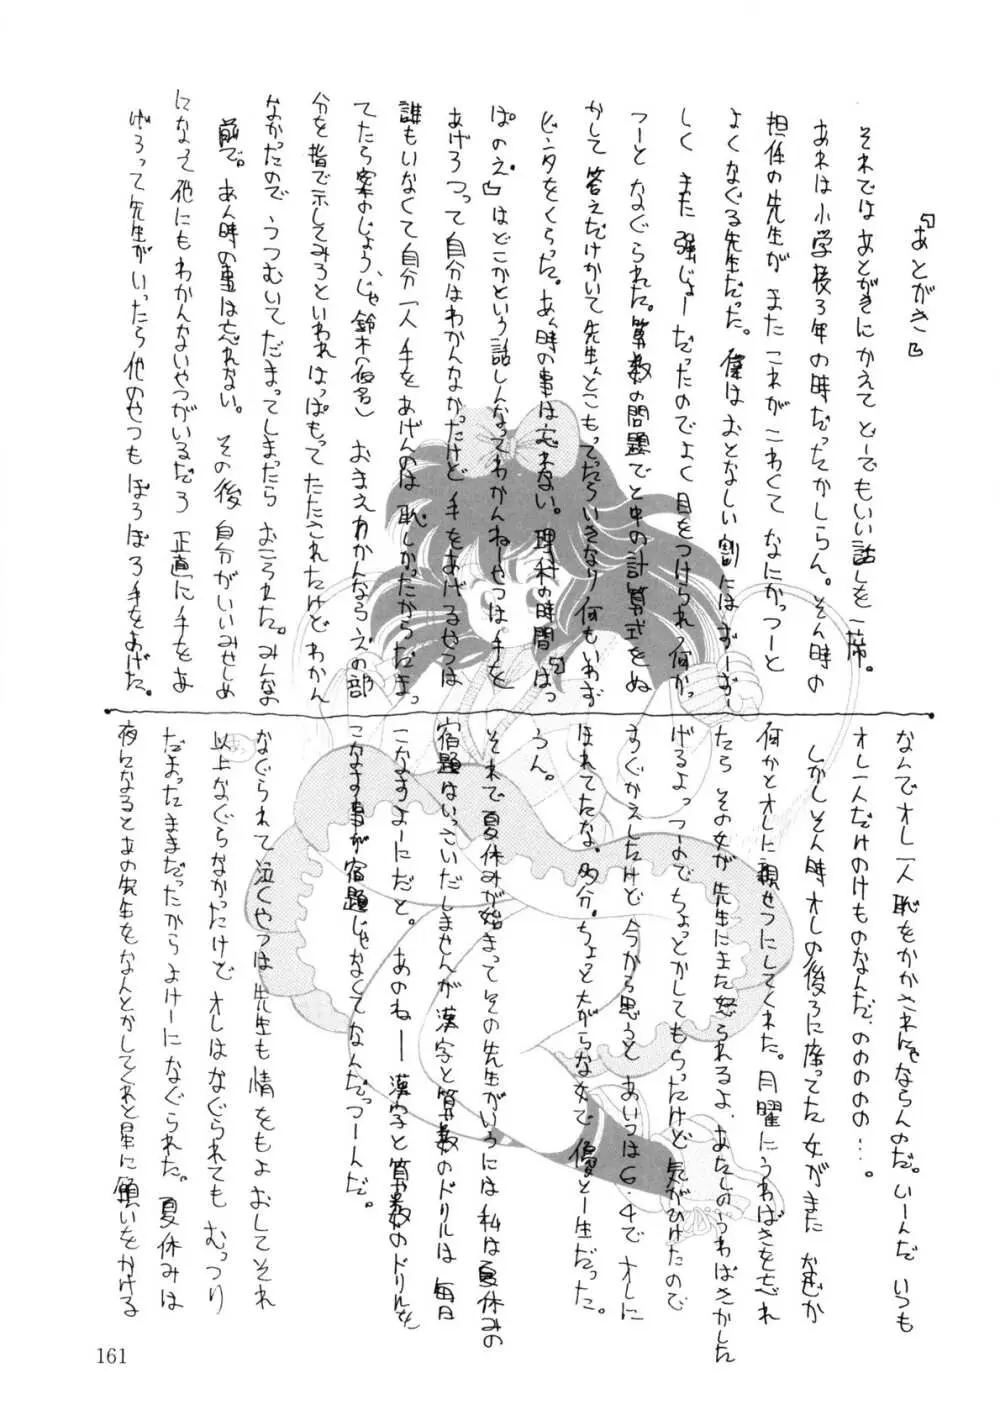 『あとがき』
それではあとがきにかえてどーでもいい話しを一席。
あれは小学校3年の時だったかしらん。そん時の
担任の先生がまたこれがこわくてなにかっつーと
よくなぐる先生だった。僕はおとなしい割にはずーずー
しくまた強じょーだったのでよく目をつけられ、何かっ
つーとなぐられた。算数の問題でと中の計算式をぬ
かして答えだけかいて先生んとこもってったらいきなり何もいわず
ビンタをくらった。あん時の事は忘れない。理科の時間「はっ
ぱのえ」はどこかという話しんなってわかんねーやつは手を
あげろっつって自分はわかんなかったけど手をあげるやつは
誰もいなくて自分一人手をあげんのは恥しかったからだまっ
てたら案のじょう、じゃ鈴木(仮名)おまえわかんならえの部
分を指で示してみろといわれはっぱもってたたされたけどわかん
なかったのでうつむいてだまってしまったらおこられた。みんな
前で。あん時の事は忘れない。その後自分がいいみせしめ
になって他にもわかんないやつがいるだろ正直に手をあ
げろって先生がいったら他のやつもぽろぽろ手をあげた。
なんでオレ一人恥をかかされにゃならんのだ。いーんだいつも
オレ一人だけのけものなんだ、のののの…。
しかしそん時オレの後ろに座ってた女がまたなぜか
何かとオレに親せつにしてくれた。月曜にうわばきを忘れ
たらその女が先生にまた怒られるよ、あたしのうわばきかした
げるよっつーのでちょっとかしてもらったけど気がひけたので
すぐかえしたけど今から思うとあいつは6、4でオレに
ほれてたな。多分。ちょっと大がらな女で優と一生だった。
うん。
それで夏休みが始まってその先生がいうには私は夏休みの
宿題はいっさいだしませんが漢字と算数のドリルは毎日
こなすよーにだと。あのねー漢字と算数のドリルを
こなす事が宿題じゃなくてなんだっつーんだ。
なぐられて泣くやつは先生も情をもよおしてそれ
以上なぐらなかったけどオレはなぐられてもむっつり
だまったままだったからよけーになぐられた。夏休みは
夜になるとあの先生をなんとかしてくれと星に願いをかける
161